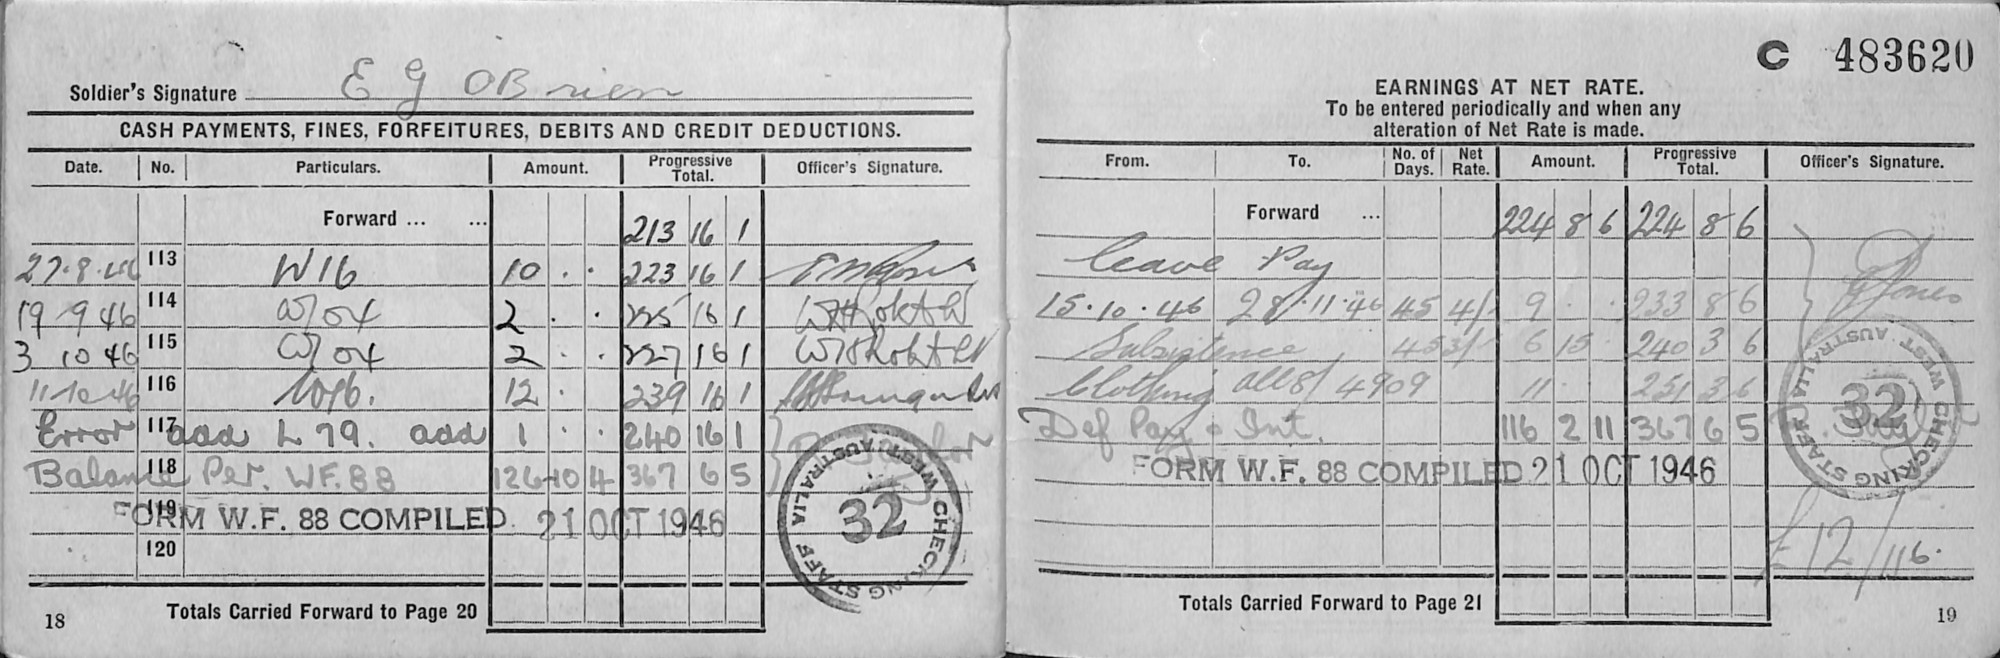 Soldier's Signature E G OBrien
CASH PAYMENTS, FINES, FORFEITURES, DEBITS AND CREDIT DEDUCTIONS.
Date. No. Particulars. Amount. Progressive Total. Officer's Signature.
Forward ... ... 213 16 1
27.8.46 113 W16 10 . . 223 16 1
19 9 46 114 W/04 2 . . 225 16 1
3 10 46 115 W/04 2 . . 227 16 1
11.10.46 116 12 . 239 16 1
Error 117 add L 79. add 1 . . 240 16 1
Balance 118 Per. WF.88 126 10 4 367 6 5
119 FORM W.F. 88 COMPILED 21 OCT 1946
120
CHECKING STAFF WEST. AUSTRALIA 32
Totals Carried Forward to Page 20
18
C 483620
EARNINGS AT NET RATE.
To be entered periodically and when any
alteration of Net Rate is made.
From. To. No. of Days. Net Rate. Amount. Progressive Total. Officer's Signature.
Forward ... 224 8 6 224 8 6
Leave Pay
15.10.46 28.11.46 45 4/- 9 . . 233 8 6 Jones
Subsistence 45 3/- 6 15 240 3 6
Clothing 4909 11 . 251 3 6
Def Pay & Int. 116 2 11 367 6 5
FORM W.F. 88 COMPILED 21 OCT 1946
CHECKING STAFF WEST. AUSTRALIA 32
£12/116.
Totals Carried Forward to Page 21
19